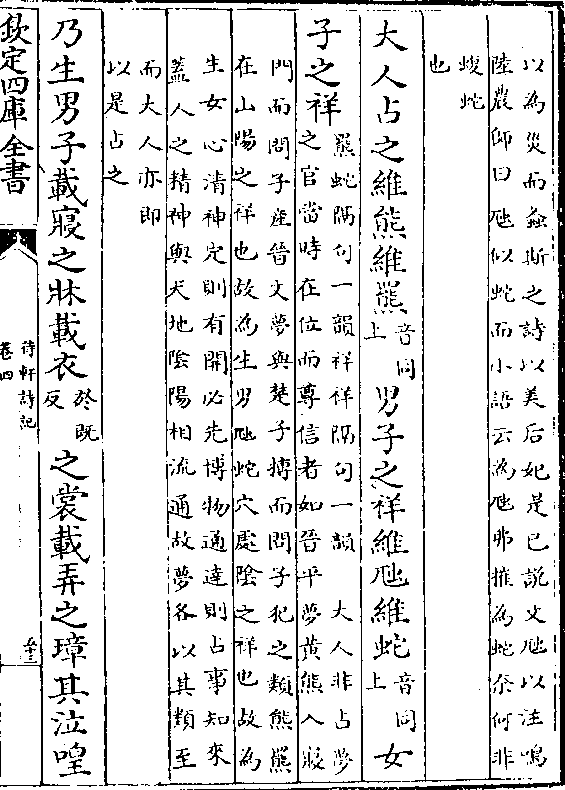 以為災而螽斯之詩以美后妃是已說文虺以注鳴
陸農師曰虺似蛇而小語云為虺弗摧為蛇奈何非
蝮蛇
也
大人占之維熊維羆音同上男子之祥維虺維蛇音同上女
子之祥羆蛇隔句一韻祥祥隔句一韻 大人非占夢
之官當時在位而尊信者如晉平夢黄熊入寢
門而問子産晉文夢與楚子搏而問子犯之類熊羆
在山陽之祥也故為生男虺蛇穴處陰之祥也故為
生女心清神定則有開必先博物通達則占事知來
蓋人之精神與天地陰陽相流通故夢各以其類至
而大人亦即
以是占之
乃生男子載寢之牀載衣於既反之裳載弄之璋其泣喤
欽定四庫全書
待軒詩記
卷四